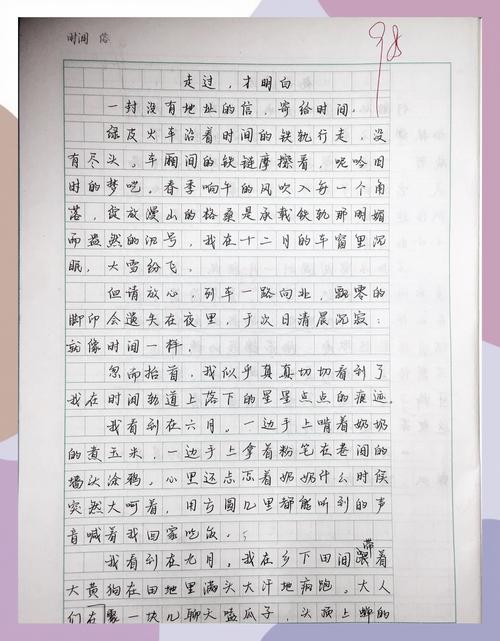 时间 悠
98
走过，才明白
一封没有地址的信，寄给时间。
绿皮火车沿着时间的铁轨行走，没
有尽头。车厢间的铁链摩擦着，呢吟旧
时的梦呓。春季响午的风吹入每一个角
落，绽放漫山的格桑是承载铁轨那明媚
而盎然的汛号，我在十二月的车窗里沉
眠，大雪纷飞。
但请放心，列车一路向北，飘零的
脚印会遗失在夜里，于次日清晨沉寂：
就像时间一样。
忽而抬首，我似乎真真切切看到了
我在时间轨道上落下的星星点点的痕迹。
我看到在六月。一边手上啃着奶奶
的煮玉米，一边手上拿着粉笔在巷间的
墙伏涂鸦，心里还忐忑着奶奶什么时候
突然大呵着，用方圆几里都能听到的声
音喊着我回家吃饭。
我看到在九月，我在乡下田间带着
大黄狗在田地里满头大汗地疯跑。大人
们在一块儿聊天嗑瓜子，头顶上蝉的